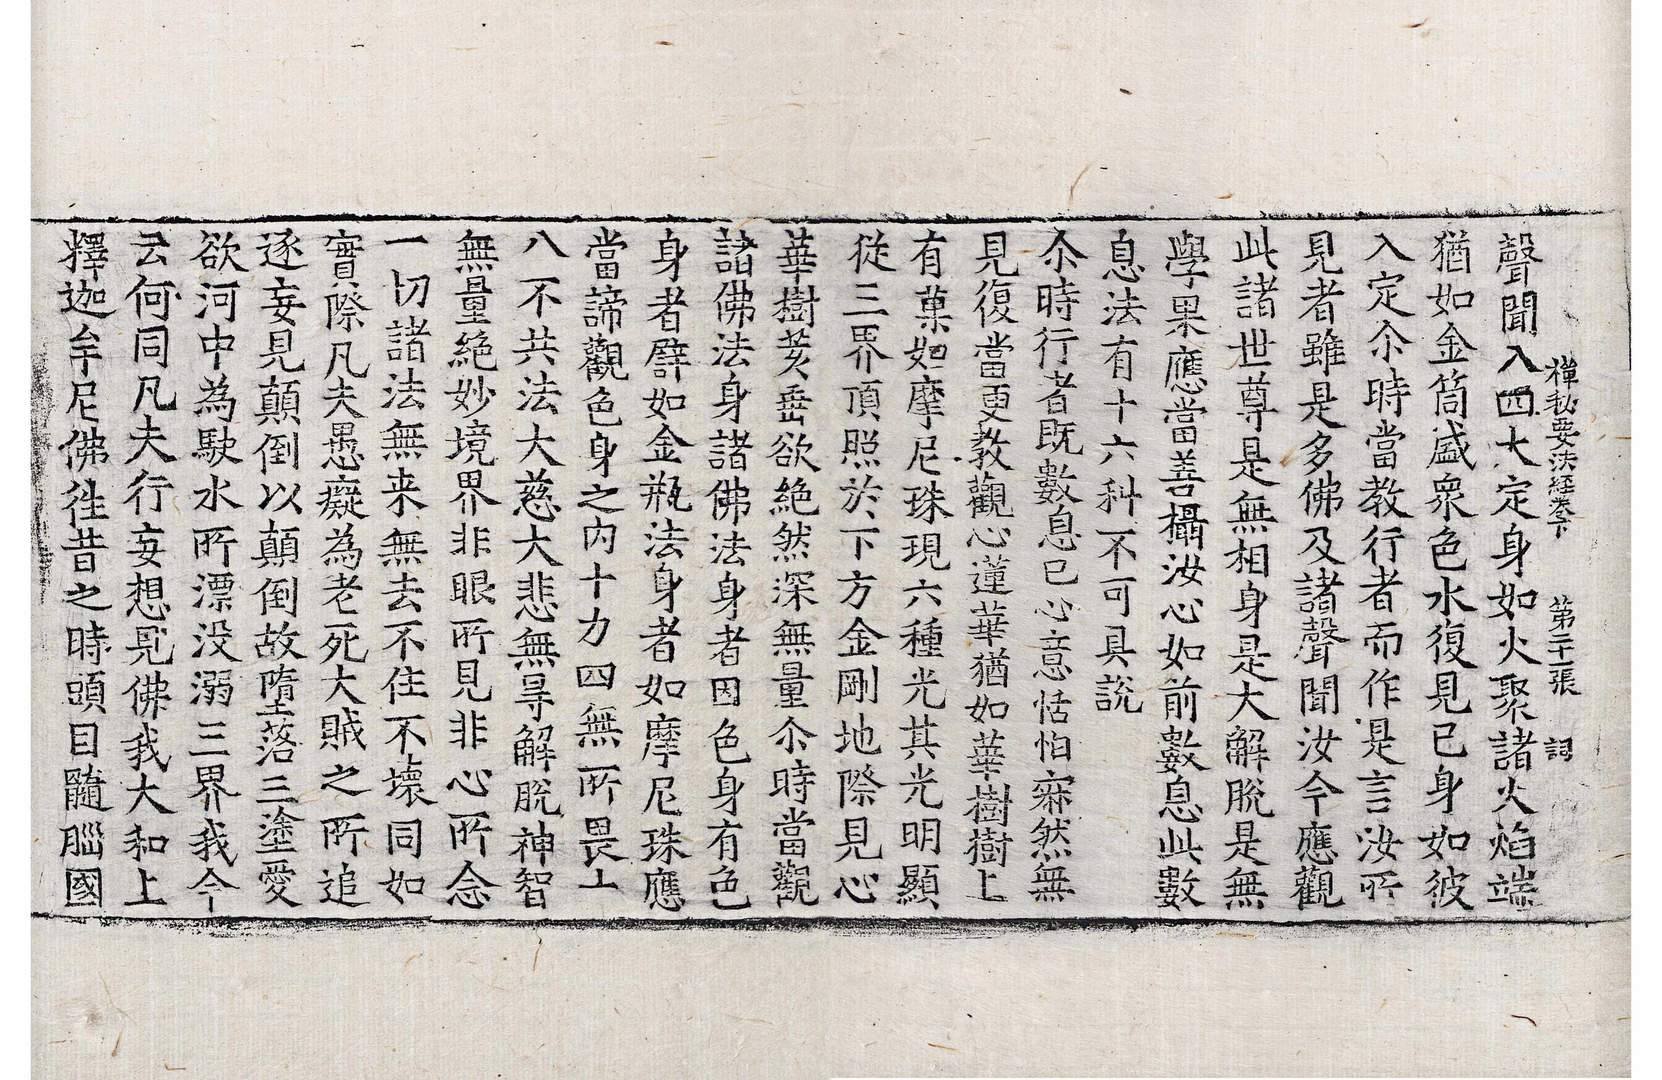 禪秘要法經卷下 第二十張 詞
聲聞入四大定身如火聚諸火焰端
猶如金筒盛衆色水復見已身如彼
入定尒時當教行者而作是言汝所
見者雖是多佛及諸聲聞汝今應觀
此諸世尊是無相身是大解脫是無
學果應當善攝汝心如前數息此數
息法有十六科不可具說
尒時行者旣數息已心意恬怕寂然無
見復當更教觀心蓮華猶如華樹樹上
有菓如摩尼珠現六種光其光明顯
從三界頂照於下方金剛地際見心
華樹莖垂欲絶然深無量尒時當觀
諸佛法身諸佛法身者因色身有色
身者譬如金瓶法身者如摩尼珠應
當諦觀色身之內十力四無所畏十
八不共法大慈大悲無㝵解脫神智
無量絶妙境界非眼所見非心所念
一切諸法無来無去不住不壞同如
實際凡夫愚癡為老死大賊之所追
逐妄見顛倒以顛倒故墮落三塗愛
欲河中為駛水所漂没溺三界我今
云何同凡夫行妄想見佛我大和上
釋迦牟尼佛徃昔之時頭目髓腦國